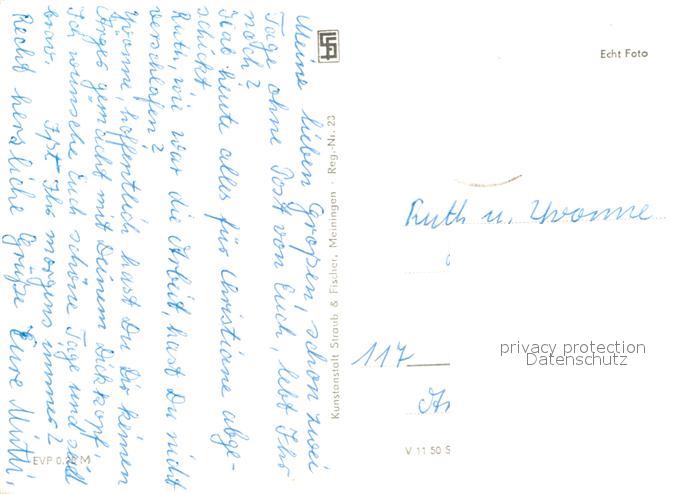 Meine lieben Großen, schon zwei
Tage ohne Post von Euch, lebt Ihr
noch?
Hab heute alles für Christiane abge-
schickt.
Ruth, wie war die Arbeit, hast Du nicht
verschlafen?
Yvonne, hoffentlich hast Du Dir keinen
Ärger gemacht mit Deinem Dickkopf,
Ich wünsche Euch schöne Tage und seid
brav. Eßt Ihr morgens immer?
Recht herzliche Grüße Eure Mutti.
Kunstanstalt Straub & Fischer, Meiningen · Reg.-Nr. 23
EVP 0,20 M
Echt Foto
Ruth u. Yvonne
117
privacy protection
Datenschutz
V 11 50 S